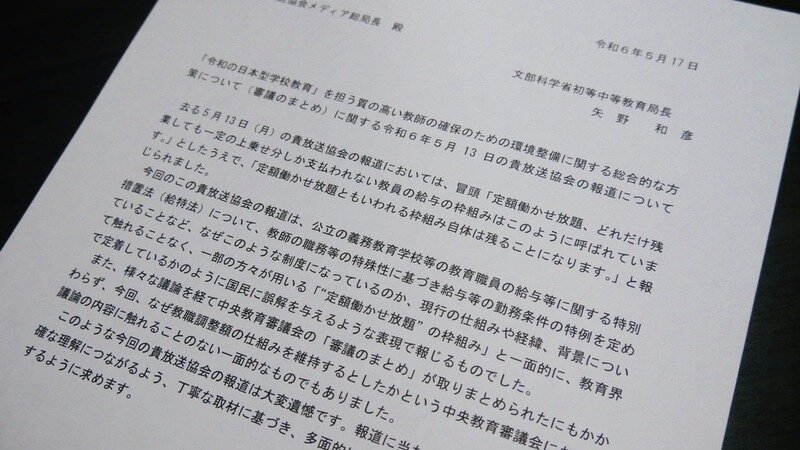 協会メディア総局長　殿
令和６年５月17日
文部科学省初等中等教育局長
矢野　和彦
「令和の日本型学校教育」を担う質の高い教師の確保のための環境整備に関する総合的な方
策について（審議のまとめ）に関する令和６年５月 13 日の貴放送協会の報道について
去る５月13日（月）の貴放送協会の報道においては、冒頭「定額働かせ放題、どれだけ残
業しても一定の上乗せ分しか支払われない教員の給与の枠組みはこのように呼ばれていま
す。」としたうえで、「定額働かせ放題ともいわれる枠組み自体は残ることになります。」と報
じられました。
今回のこの貴放送協会の報道は、公立の義務教育学校等の教育職員の給与等に関する特別
措置法（給特法）について、教師の職務等の特殊性に基づき給与等の勤務条件の特例を定め
ていることなど、なぜこのような制度になっているのか、現行の仕組みや経緯、背景につい
て触れることなく、一部の方々が用いる「“定額働かせ放題”の枠組み」と一面的に、教育界
で定着しているかのように国民に誤解を与えるような表現で報じるものでした。
また、様々な議論を経て中央教育審議会の「審議のまとめ」が取りまとめられたにもかか
わらず、今回、なぜ教職調整額の仕組みを維持するとしたかという中央教育審議会にお
議論の内容に触れることのない一面的なものでもありました。
このような今回の貴放送協会の報道は大変遺憾です。報道に当た
確な理解につながるよう、丁寧な取材に基づき、多面的
するように求めます。